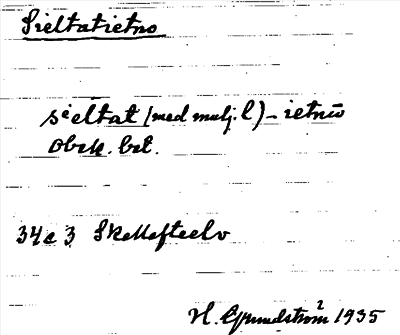 Sieltatietno
sieltat (med mulj. l) - ietnū
Obek. bet.
34e 3 Skellefteelv
H. Grundström 1935